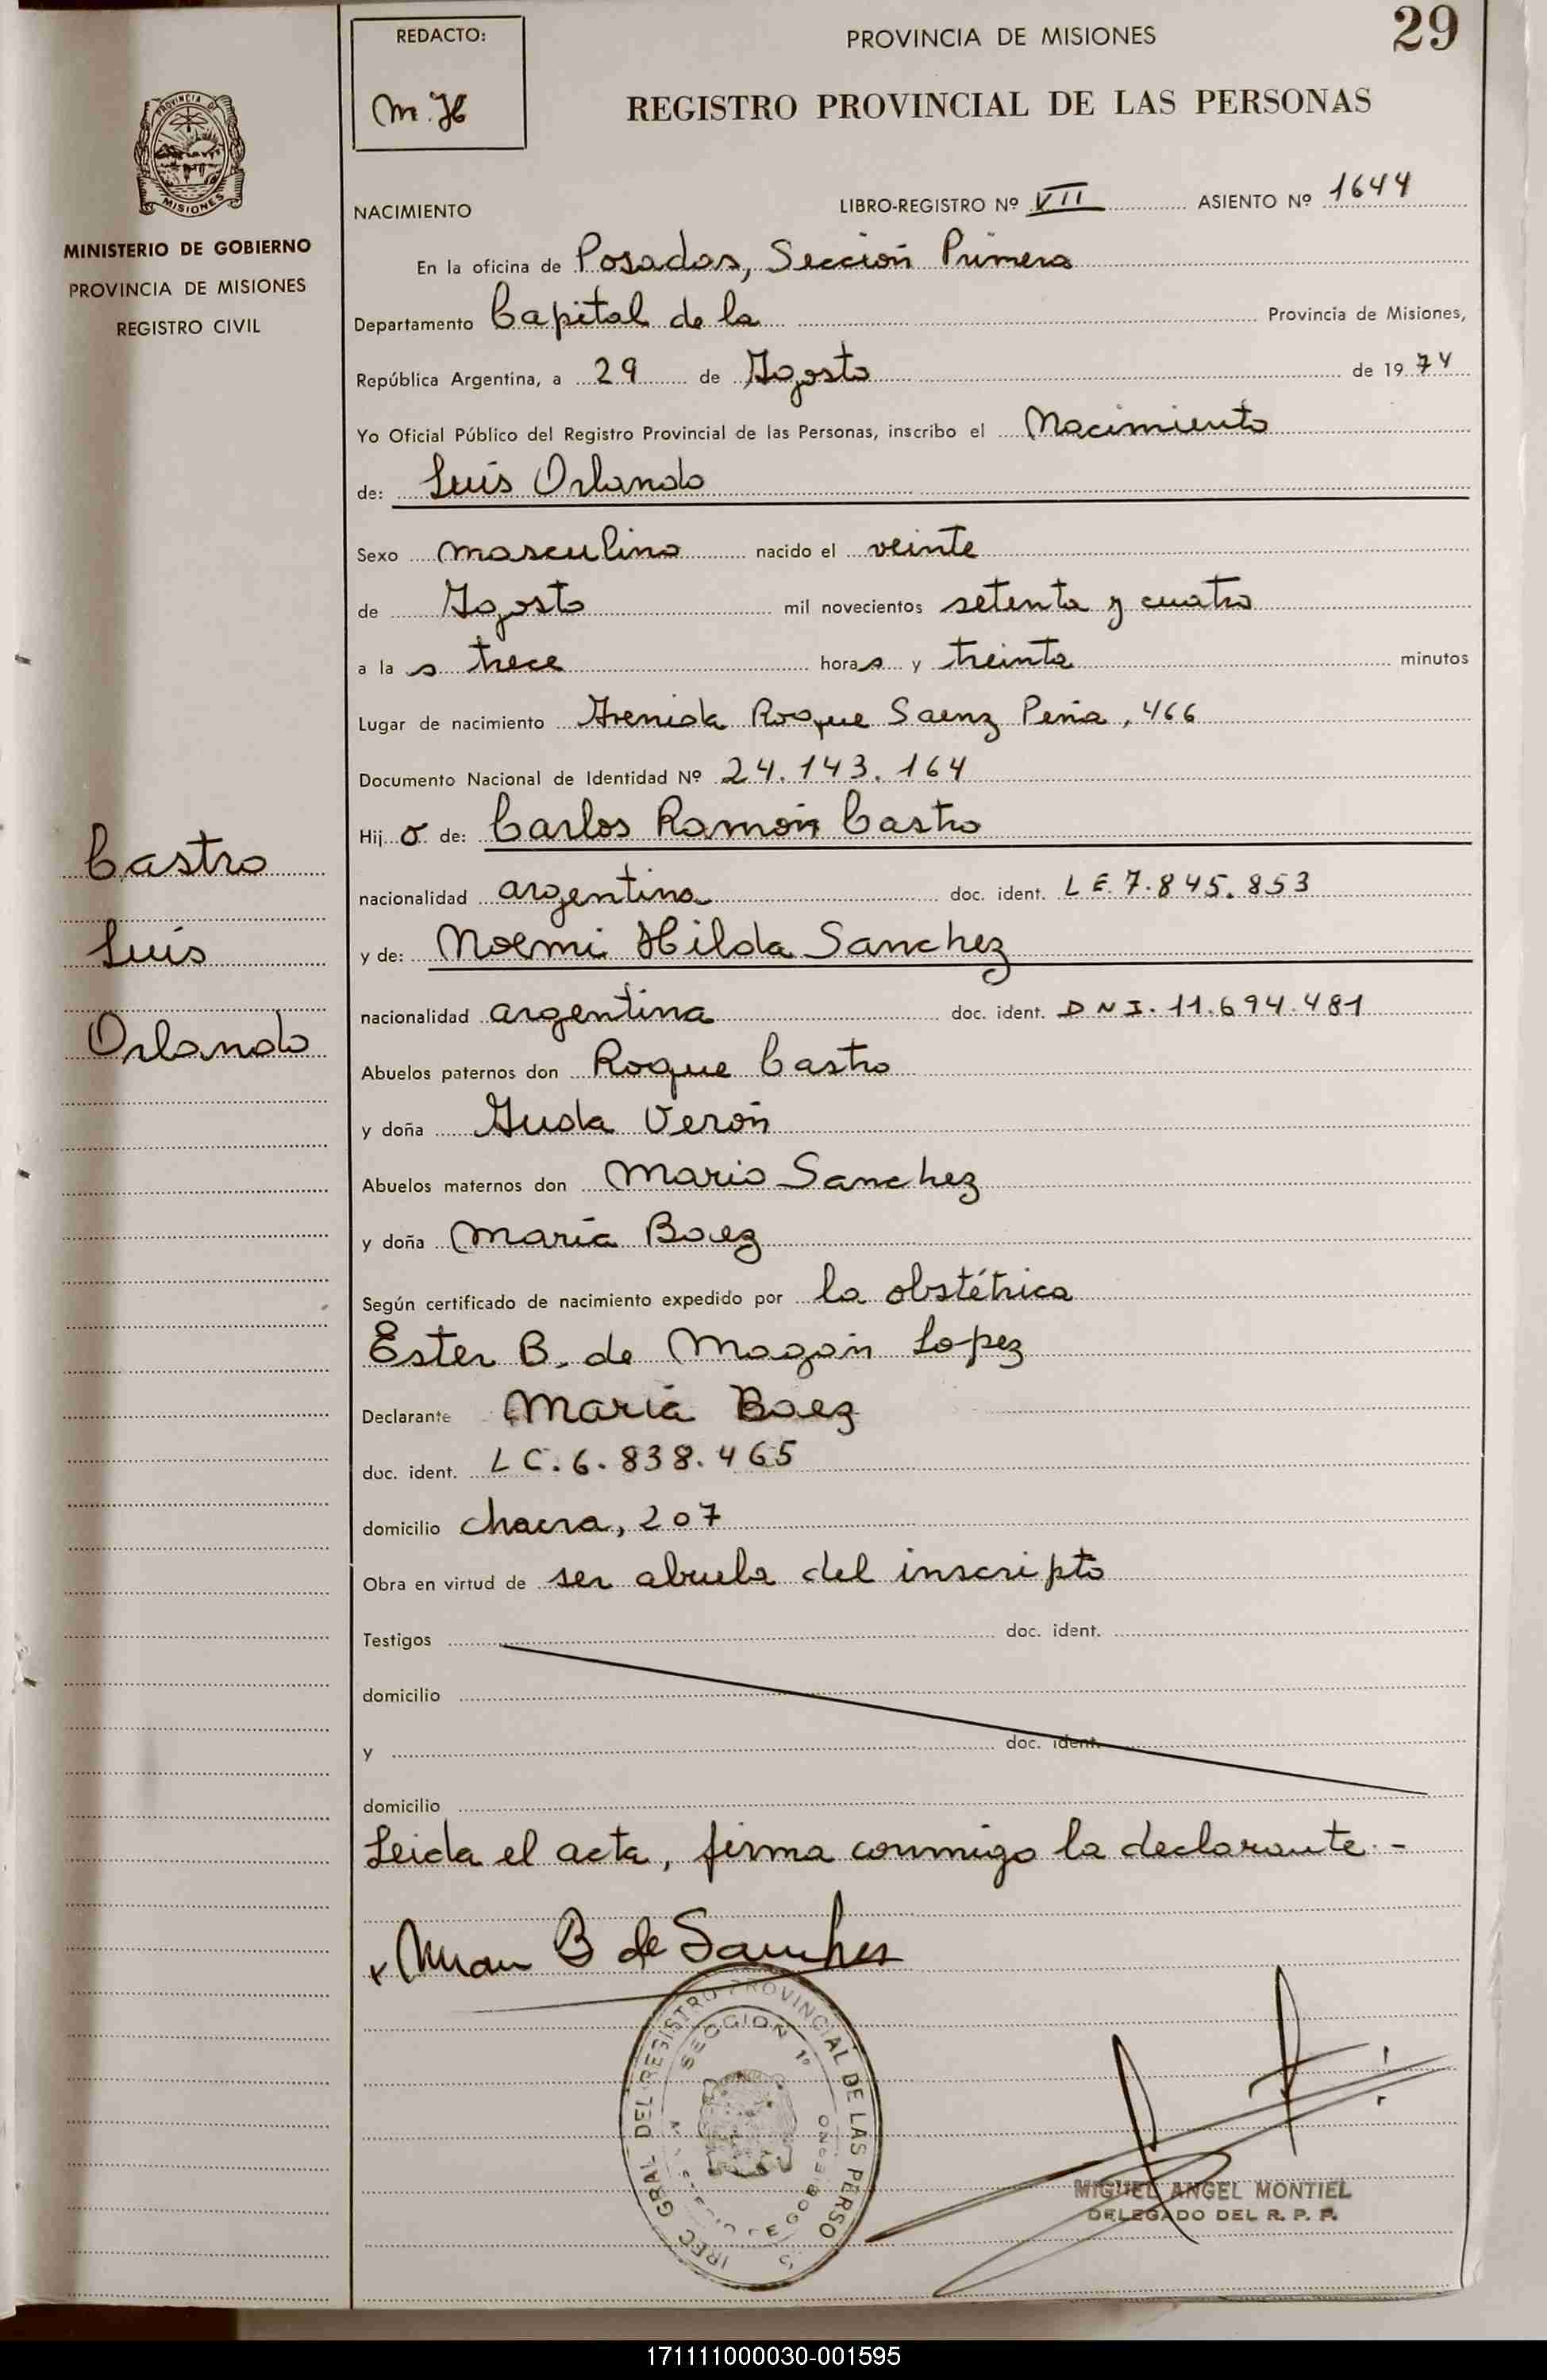 REDACTO:
M.H
PROVINCIA DE MISIONES
29
REGISTRO PROVINCIAL DE LAS PERSONAS
PROVINCIA DE
MISIONES
MINISTERIO DE GOBIERNO
PROVINCIA DE MISIONES
REGISTRO CIVIL
NACIMIENTO LIBRO-REGISTRO Nº VII ASIENTO Nº 1644
En la oficina de Posadas, Sección Primera
Departamento Capital de la Provincia de Misiones,
República Argentina, a 29 de Agosto de 1974
Yo Oficial Público del Registro Provincial de las Personas, inscribo el Nacimiento
de: Luis Orlando
Sexo masculino nacido el veinte
de Agosto mil novecientos setenta y cuatro
a la s trece horas y treinta minutos
Lugar de nacimiento Avenida Roque Saenz Peña, 466
Documento Nacional de Identidad Nº 24.143.164
Hijo de: Carlos Ramón Castro
nacionalidad argentina doc. ident. L E. 7.845.853
y de: Noemi Hilda Sanchez
nacionalidad argentina doc. ident. D N I. 11.694.481
Castro
Luis
Orlando
Abuelos paternos don Roque Castro
y doña Auda Verón
Abuelos maternos don Mario Sanchez
y doña María Baez
Según certificado de nacimiento expedido por la obstétrica
Ester B. de Magán Lopez
Declarante María Baez
doc. ident. L C. 6.838.465
domicilio chacra, 207
Obra en virtud de ser abuela del inscripto
Testigos doc. ident.
domicilio
y doc. ident.
domicilio
Leida el acta, firma conmigo la declarante.-
B de Sanches
DIREC. GRAL DEL REGISTRO PROVINCIAL DE LAS PERSO
SECCION 1º
MIGUEL ANGEL MONTIEL
DELEGADO DEL R. P. P.
171111000030-001595